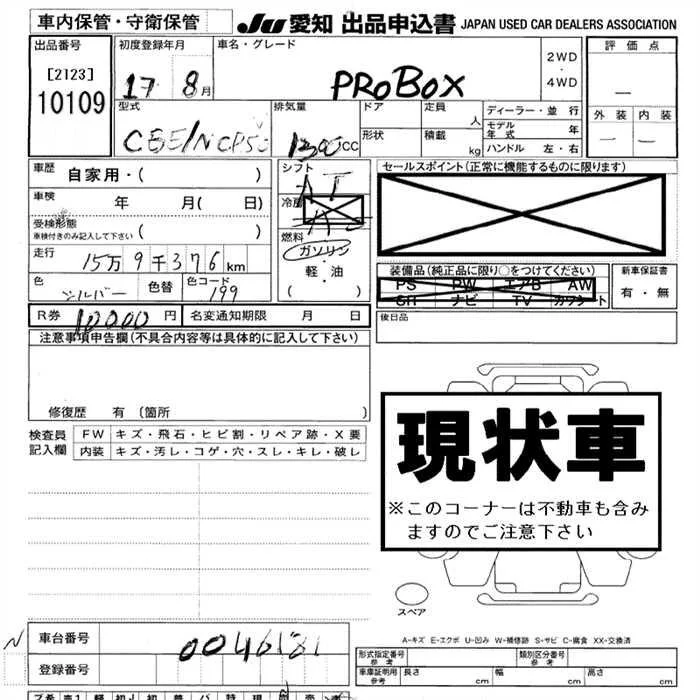 車内保管・守衛保管
JU 愛知 出品申込書 JAPAN USED CAR DEALERS ASSOCIATION
出品番号
[2123]
10109
初度登録年月
17 8月
車名・グレード
PROBOX
2WD
・
4WD
評価点
—
外装 内装
— —
型式
排気量
1300cc
ドア
定員
人
形状
積載
kg
ディーラー・並 行
モデル年式 年
ハンドル 左・右
車歴 自家用・( )
車検 年 月( 日)
受検形態
車検付きのみ記入して下さい ( )
走行
15万9千376km
色
シルバー
色替
色コード
199
シフト
AT
冷房
燃料
ガソリン
・
軽・油
( )
セールスポイント(正常に機能するものに限ります)
装備品(純品に限り○をつけてください)
PS PW エアB AW
SR ナビ TV カワシート
新車保証書
有・無
R券 10000円
名変通知期限 月 日
後日品
注意事項申告欄(不具合内容等は具体的に記入して下さい)
修復歴 有 (箇所 )
検査員
記入欄
FW キズ・飛石・ヒビ割・リペア跡・X要
内装 キズ・汚レ・コゲ・穴・スレ・キレ・破レ
現状車
※このコーナーは不動車も含み
ますのでご注意下さい
スペア
A-キズ E-エクボ U-凹み W-補修跡 S-サビ C-腐食 XX-交換済
N
車台番号
0046181
登録番号
形式指定番号
参考
類別区分番号
参考
車庫証明用
参考
長さ cm
幅 cm
高さ cm